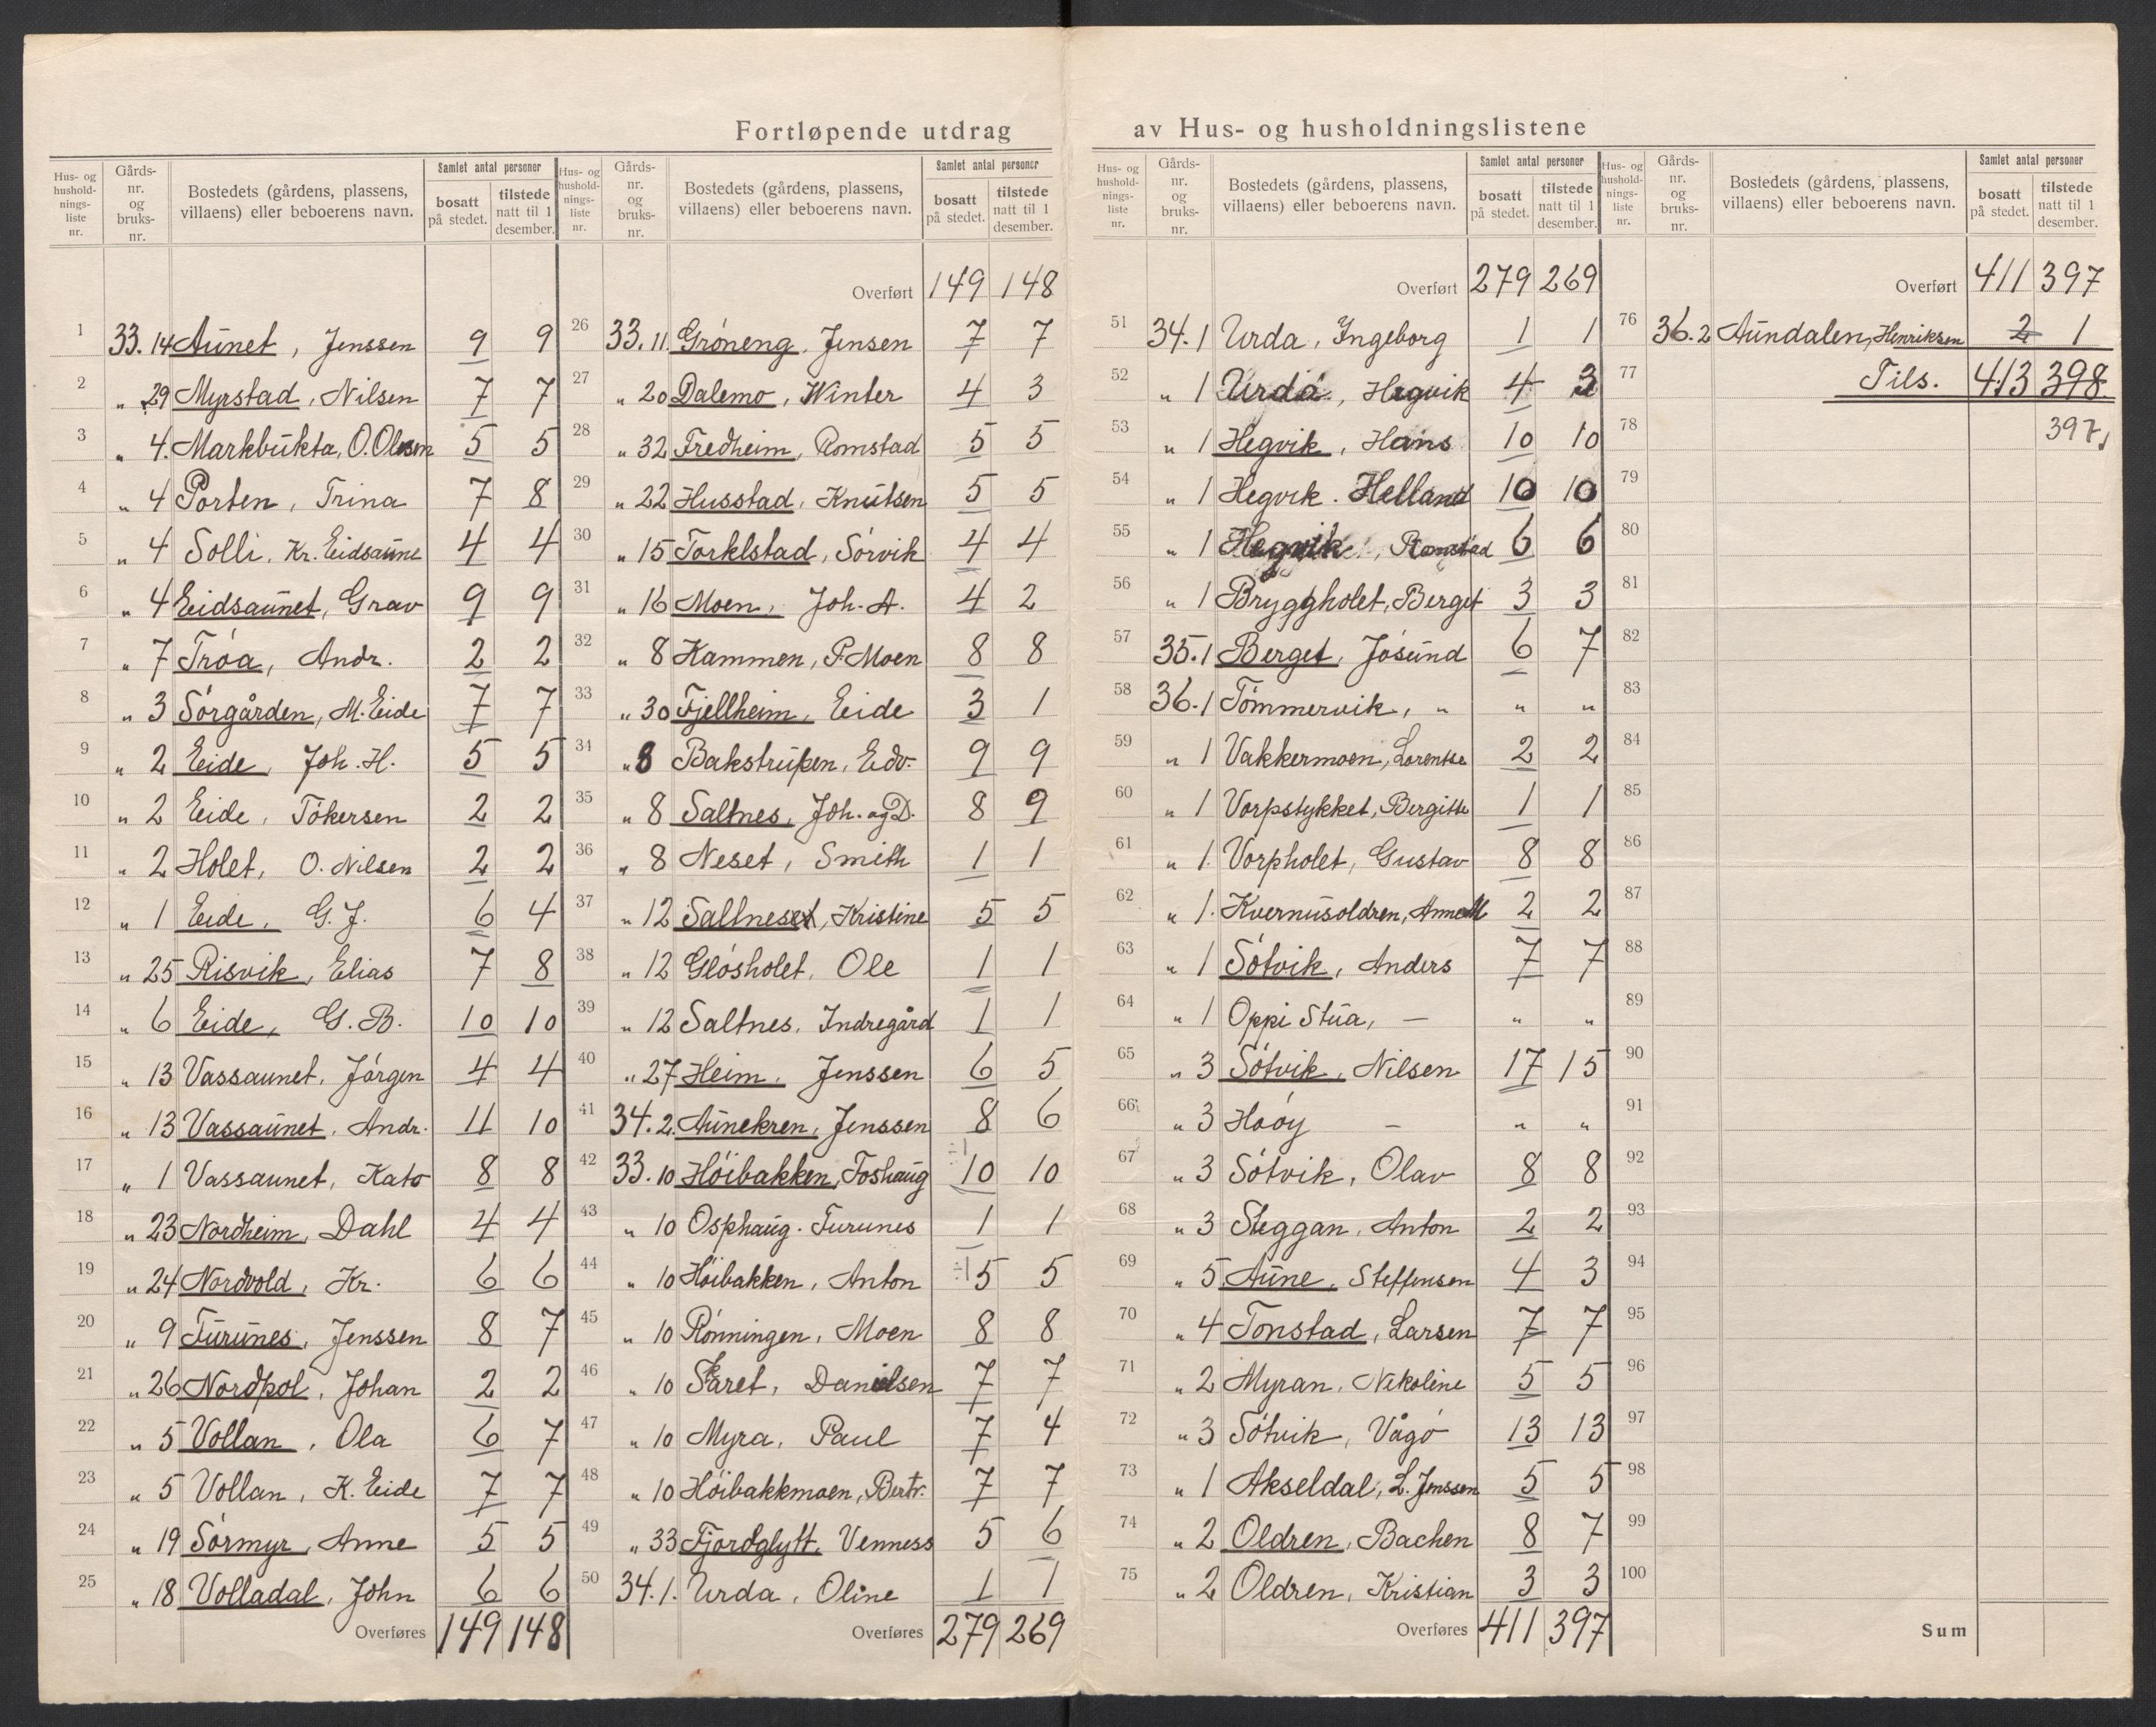 Fortløpende utdrag av Hus- og husholdningslistene
Hus- og hushold- nings- liste nr. | Gårds- nr. og bruks- nr. | Bostedets (gårdens, plassens, villaens) eller beboerens navn. | Samlet antal personer | bosatt på stedet. | tilstede natt til 1 desember.
1 33.14 Aunet, Jenssen 9 9
2 „ 29 Myrstad, Nilsen 7 7
3 „ 4. Markbukta, O. Olsen 5 5
4 „ 4 Porten, Trina 7 8
5 „ 4 Solli, Kr. Eidsaune 4 4
6 „ 4 Eidsaunet, Grav 9 9
7 „ 7 Tróa, Andr. 2 2
8 „ 3 Sórgården, M. Eide 7 7
9 „ 2 Eide, Joh. H. 5 5
10 „ 2 Eide, Tókersen 2 2
11 „ 2 Holet, O. Nilsen 2 2
12 „ 1 Eide, G. J. 6 4
13 „ 25 Risvik, Elias 7 8
14 „ 6 Eide, G. B. 10 10
15 „ 13 Vassaunet, Jórgen 4 4
16 „ 13 Vassaunet, Andr. 11 10
17 „ 1 Vassaunet, Kato 8 8
18 „ 23 Nordheim, Dahl 4 4
19 „ 24 Nordvold, Kr. 6 6
20 „ 9 Furunes, Jenssen 8 7
21 „ 26 Nordpol, Johan 2 2
22 „ 5 Vollan, Ola 6 7
23 „ 5 Vollan, K. Eide 7 7
24 „ 19 Sórmyr, Anne 5 5
25 „ 18 Volladal, John 6 6
Overføres 149 148
Hus- og hushold- nings- liste nr. | Gårds- nr. og bruks- nr. | Bostedets (gårdens, plassens, villaens) eller beboerens navn. | Samlet antal personer | bosatt på stedet. | tilstede natt til 1 desember.
Overført 149 148
26 33.11. Gróneng, Jensen 7 7
27 „ 20 Dalemo, Winter 4 3
28 „ 32 Fredheim, Romstad 5 5
29 „ 22 Husstad, Knutsen 5 5
30 „ 15 Torklstad, Sórvik 4 4
31 „ 16 Moen, Joh. A. 4 2
32 „ 8 Kammen, P. Moen 8 8
33 „ 30 Fjellheim, Eide 3 1
34 „ 8 Bakstrupen, Edv. 9 9
35 „ 8 Saltnes, Joh. og D. 8 9
36 „ 8 Neset, Smith 1 1
37 „ 12 Saltneset, Kristine 5 5
38 „ 12 Glósholet, Ole 1 1
39 „ 12 Saltnes, Indregård 1 1
40 „ 27 Heim, Jenssen 6 5
41 34.2. Aunekren, Jenssen 8 6
42 33.10 Hóibakken, Foshaug ÷1 10 10
43 „ 10 Osphaug. Furunes 1 1
44 „ 10 Hóibakken, Anton ÷1 5 5
45 „ 10 Rónningen, Moen 8 8
46 „ 10 Skaret, Danielsen 7 7
47 „ 10 Myra, Paul 7 4
48 „ 10 Hóibakkmoen, Bertr. 7 7
49 „ 33 Fjordglytt. Venness 5 6
50 34.1. Urda, Oline 1 1
Overføres 279 269
Hus- og hushold- nings- liste nr. | Gårds- nr. og bruks- nr. | Bostedets (gårdens, plassens, villaens) eller beboerens navn. | Samlet antal personer | bosatt på stedet. | tilstede natt til 1 desember.
Overført 279 269
51 34.1 Urda, Ingeborg 1 1
52 „ 1 Urda, Hegvik 4 3
53 „ 1 Hegvik, Hans 10 10
54 „ 1 Hegvik. Helland 10 10
55 „ 1 Hegvik, Romstad 6 6
56 „ 1 Bryggholet, Berget 3 3
57 35.1 Berget, Jósund 6 7
58 36.1 Tómmervik, „ „ „
59 „ 1 Vakkermoen, Lorentse 2 2
60 „ 1 Vorpstykket, Bergitte 1 1
61 „ 1. Vorpholet, Gustav 8 8
62 „ 1. Kvernusoldren, Anne M 2 2
63 „ 1 Sótvik, Anders 7 7
64 „ 1 Oppi Stua, — „ „
65 „ 3 Sótvik, Nilsen 17 15
66 „ 3 Hóóy — „ „
67 „ 3 Sótvik, Olav 8 8
68 „ 3 Steggan, Anton 2 2
69 „ 5 Aune, Steffensen 4 3
70 „ 4 Tonstad, Larsen 7 7
71 „ 2 Myran, Nikoline 5 5
72 „ 3 Sótvik, Vågó 13 13
73 „ 1 Akseldal, L. Jenssen 5 5
74 „ 2 Oldren, Bachen 8 7
75 „ 2 Oldren, Kristian 3 3
Overføres 411 397
Hus- og hushold- nings- liste nr. | Gårds- nr. og bruks- nr. | Bostedets (gårdens, plassens, villaens) eller beboerens navn. | Samlet antal personer | bosatt på stedet. | tilstede natt til 1 desember.
Overført 411 397
76 36.2 Aundalen, Henriksen 2 1
77 Tils. 413 398.
78 397
79
80
81
82
83
84
85
86
87
88
89
90
91
92
93
94
95
96
97
98
99
100
Sum